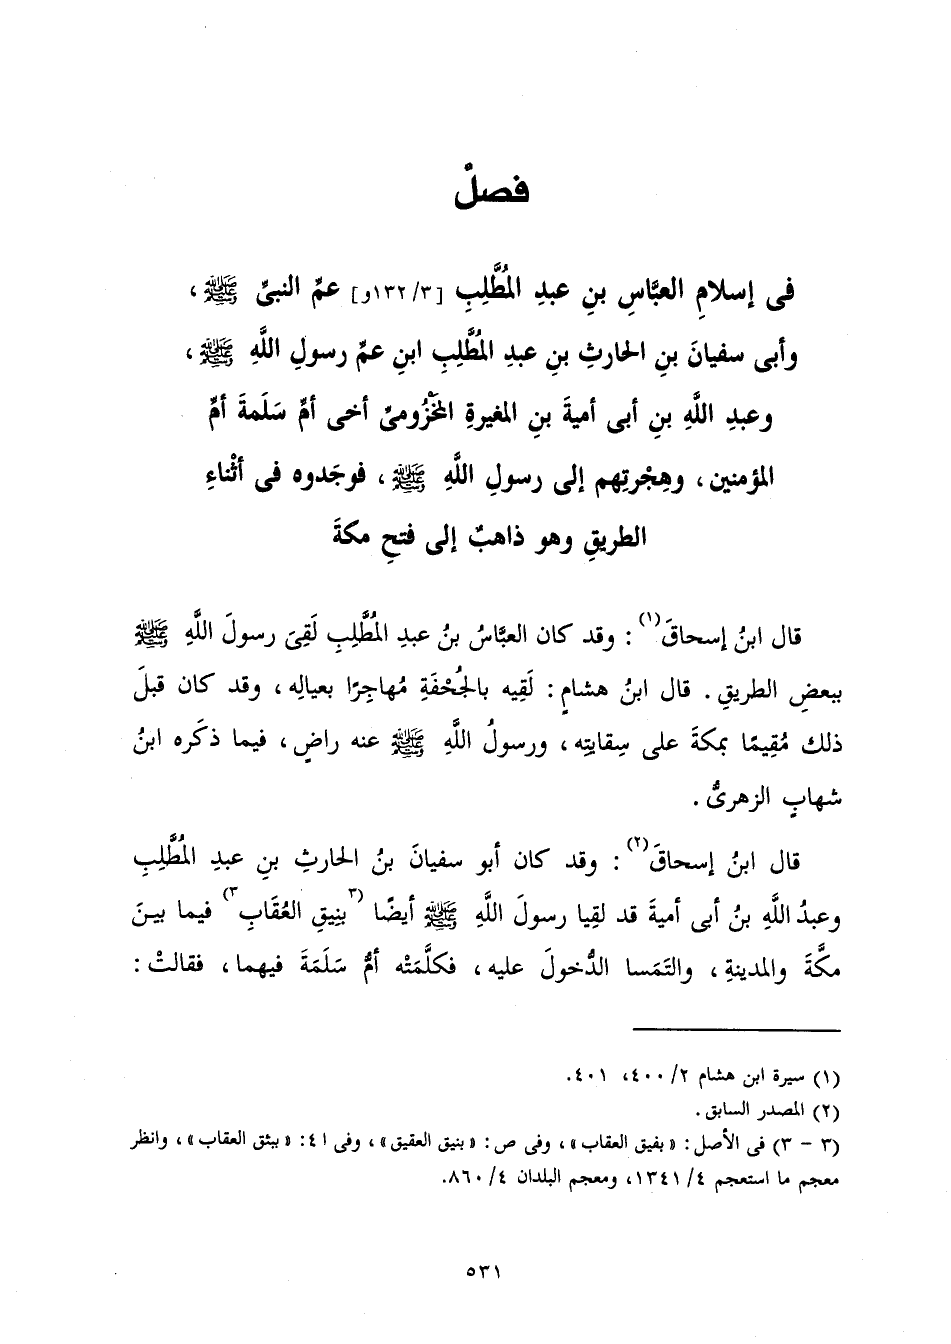 فصلٌ
فى إسلامِ العبَّاسِ بنِ عبدِ المُطَّلِبِ [١٣٢/٣و] عمِّ النبىِّ ﷺ،
وأبى سفيانَ بنِ الحارثِ بنِ عبدِ المُطَّلِبِ ابنِ عمِّ رسولِ اللَّهِ ﷺ،
وعبدِ اللَّهِ بنِ أبى أميةَ بنِ المغيرةِ المَخْزُومىِّ أخى أمِّ سَلَمةَ أمِّ
المؤمنين، وهِجْرتِهم إلى رسولِ اللَّهِ ﷺ، فوجَدوه فى أثْناءِ
الطريقِ وهو ذاهبٌ إلى فتحِ مكةَ
قال ابنُ إسحاقَ(١): وقد كان العبَّاسُ بنُ عبدِ المُطَّلِبِ لَقِىَ رسولَ اللَّهِ ﷺ
ببعضِ الطريقِ. قال ابنُ هشامٍ: لَقِيه بالجُحْفَةِ مُهاجِرًا بعيالِه، وقد كان قبلَ
ذلك مُقِيمًا بمكةَ على سِقايتِه، ورسولُ اللَّهِ ﷺ عنه راضٍ، فيما ذكَره ابنُ
شهابٍ الزهرىُّ.
قال ابنُ إسحاقَ(٢): وقد كان أبو سفيانَ بنُ الحارثِ بنِ عبدِ المُطَّلِبِ
وعبدُ اللَّهِ بنُ أبى أميةَ قد لقِيا رسولَ اللَّهِ ﷺ أيضًا (٣بنِيقِ العُقَابِ٣) فيما بينَ
مكَّةَ والمدينةِ، والتَمَسا الدُّخولَ عليه، فكلَّمَتْه أمُّ سَلَمَةَ فيهما، فقالتْ:
(١) سيرة ابن هشام ٢/ ٤٠٠، ٤٠١.
(٢) المصدر السابق.
(٣ - ٣) فى الأصل: «بفيق العقاب»، وفى ص: «بنيق العقيق»، وفى ا ٤: «ببثق العقاب»، وانظر
معجم ما استعجم ٤/ ١٣٤١، ومعجم البلدان ٤/ ٨٦٠.
٥٣١